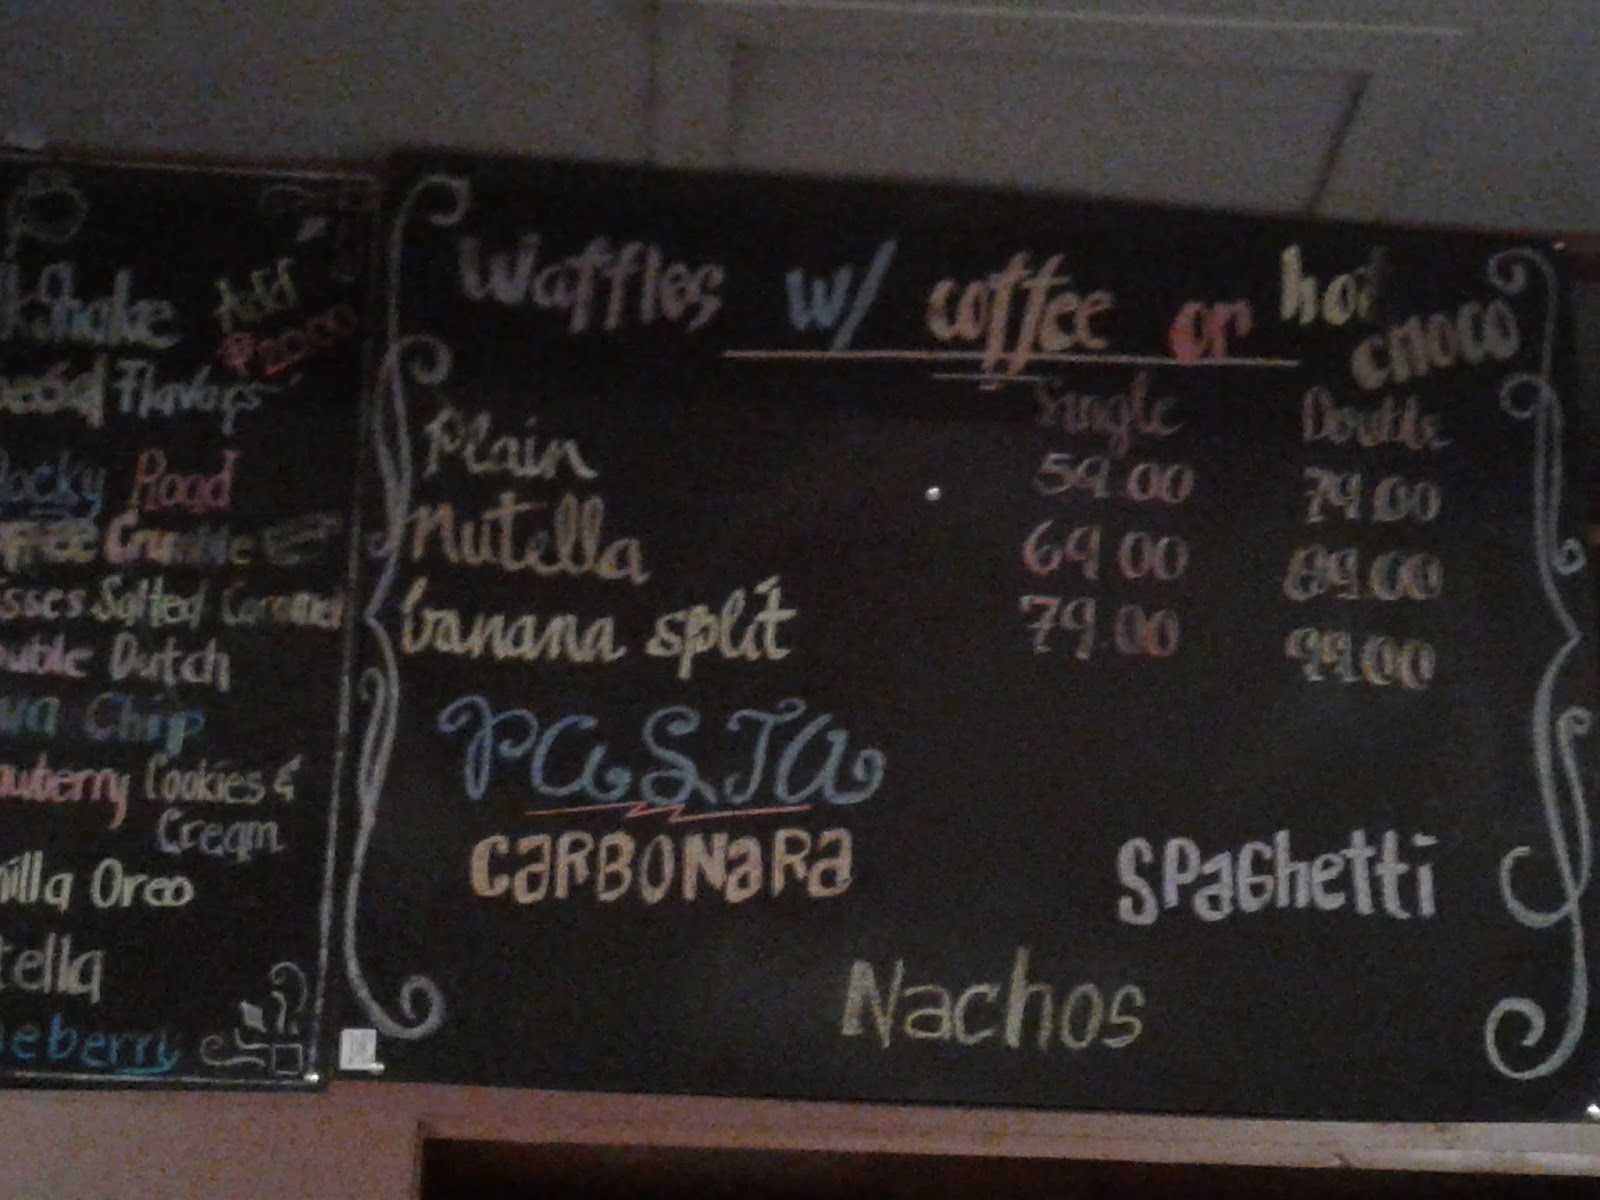 Add
Flavors
Rocky Road
Coffee Crumble
Kisses Salted Caramel
Double Dutch
Java Chip
Strawberry Cookies &
Cream
Vanilla Oreo
Nutella
Blueberry
Waffles w/ coffee or hot
choco
Single Double
Plain 59.00 79.00
Nutella 69.00 89.00
banana split 79.00 99.00
PASTA
CARBONARA SPAGHETTI
Nachos